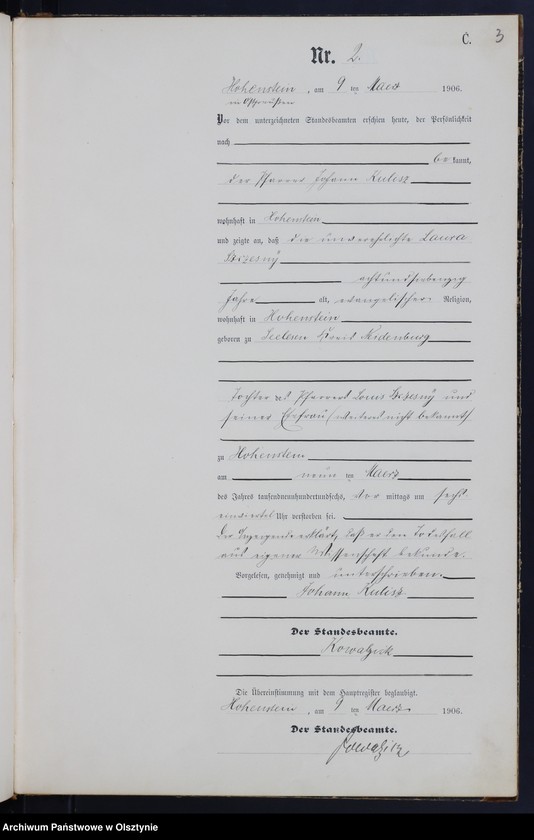 C. 3
Nr. 2.
Hohenstein, am 9 ten Maerz 1906.
in Ostpreußen
Vor dem unterzeichneten Standesbeamten erschien heute, der Persönlichkeit
nach
be kannt,
der Pfarrer Johann Kulisz
wohnhaft in Hohenstein
und zeigte an, daß die unverehelichte Laura
Skzesny
achtundsiebenzig
Jahre alt, evangelischer Religion,
wohnhaft in Hohenstein
geboren zu Seelesen Kreis Neidenburg
Tochter des Pfarrers Skzesny und
seiner Ehefrau (weiteres nicht bekannt)
zu Hohenstein
am neun ten Maerz
des Jahres tausendneunhundertundsechs, vor mittags um sechs
einviertel Uhr verstorben sei.
Der Anzeigende erklärt, daß er den Todesfall
aus eigener Wissenschaft bekunde.
Vorgelesen, genehmigt und unterschrieben.
Johann Kulisz
Der Standesbeamte.
Kowalzick
Die Übereinstimmung mit dem Hauptregister beglaubigt.
Hohenstein, am 9 ten Maerz 1906.
Der Standesbeamte.
Kowalzick
Archiwum Państwowe w Olsztynie